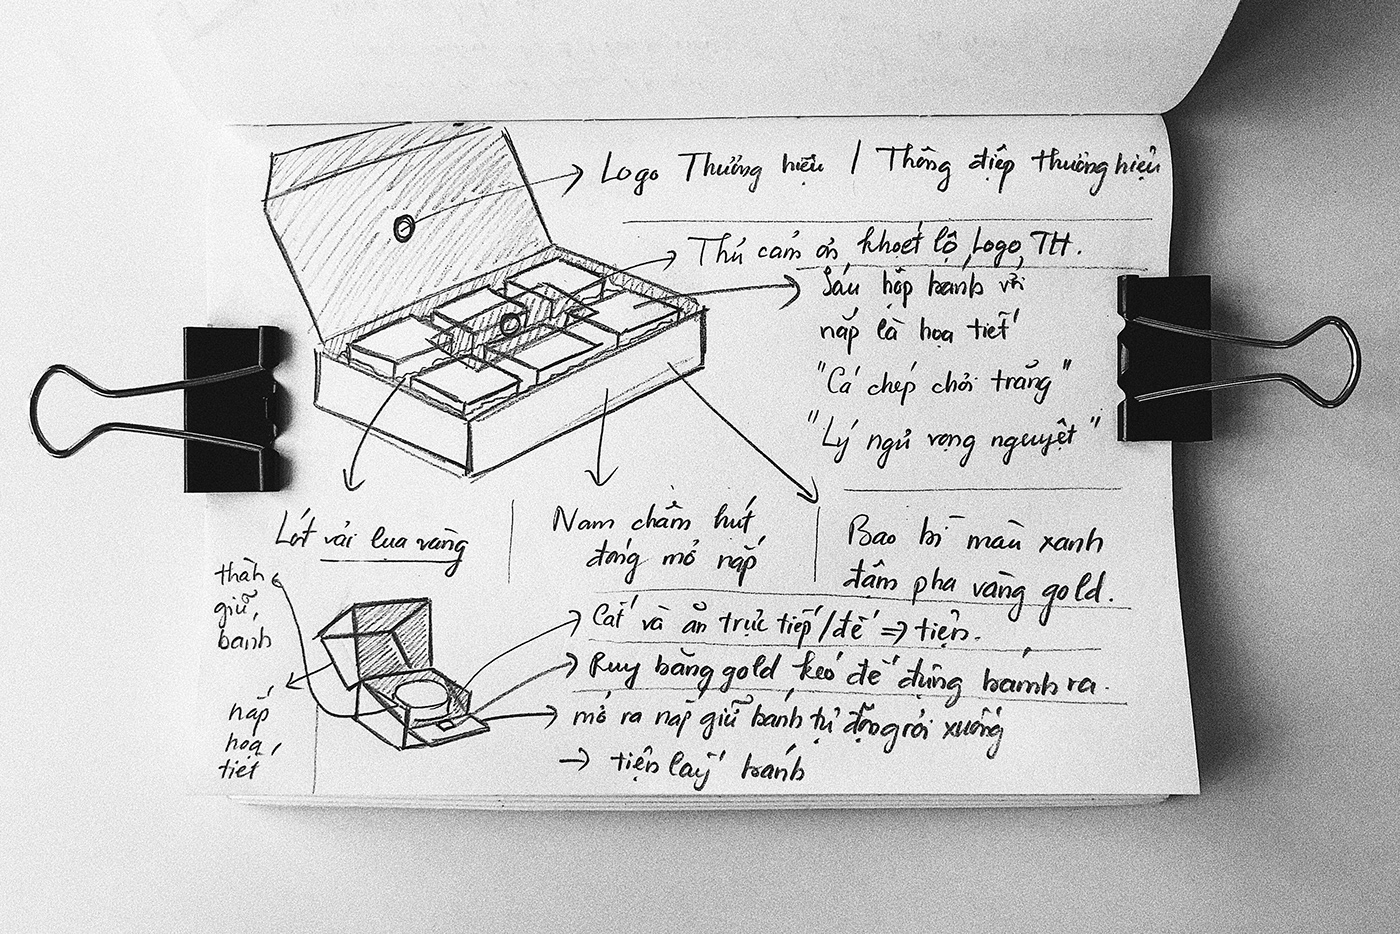 Logo Thương hiệu / Thông điệp thương hiệu
Thú cảm ơn, khoét lộ Logo TH.
Sáu hộp bánh với
nắp là họa tiết
"Cá chép chơi trăng"
"Lý ngư vọng nguyệt"
Lót vải lụa vàng
Nam châm hút
đóng mở nắp
Bao bì màu xanh
đậm pha vàng gold.
thành
giữ
bánh
nắp
họa
tiết
Cắt và ăn trực tiếp/đế => tiện.
Ruy băng gold kéo đế đựng bánh ra.
mở ra nắp giữ bánh tự động rơi xuống
→ tiện lấy bánh